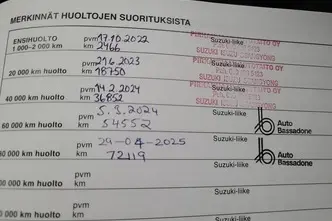 MERKINNÄT HUOLTOJEN SUORITUKSISTA
ENSIHUOLTO pvm 17.10.2022 Suzuki-liike
1.000–2.000 km km 2466
pvm 21.6.2023
20 000 km huolto km 18750 Suzuki-liike
pvm 14.2.2024
40 000 km huolto km 36852 Suzuki-liike
pvm 5.3.2024 Suzuki-liike
60 000 km huolto km 54552 Auto Bassadone
pvm 29-04-2025 Suzuki-liike
80 000 km huolto km 72119 Auto Bassadone
pvm
000 km huolto km Suzuki-liike
pvm
000 km huolto km Suzuki-liike
pvm
000 km huolto km Suzuki-liike